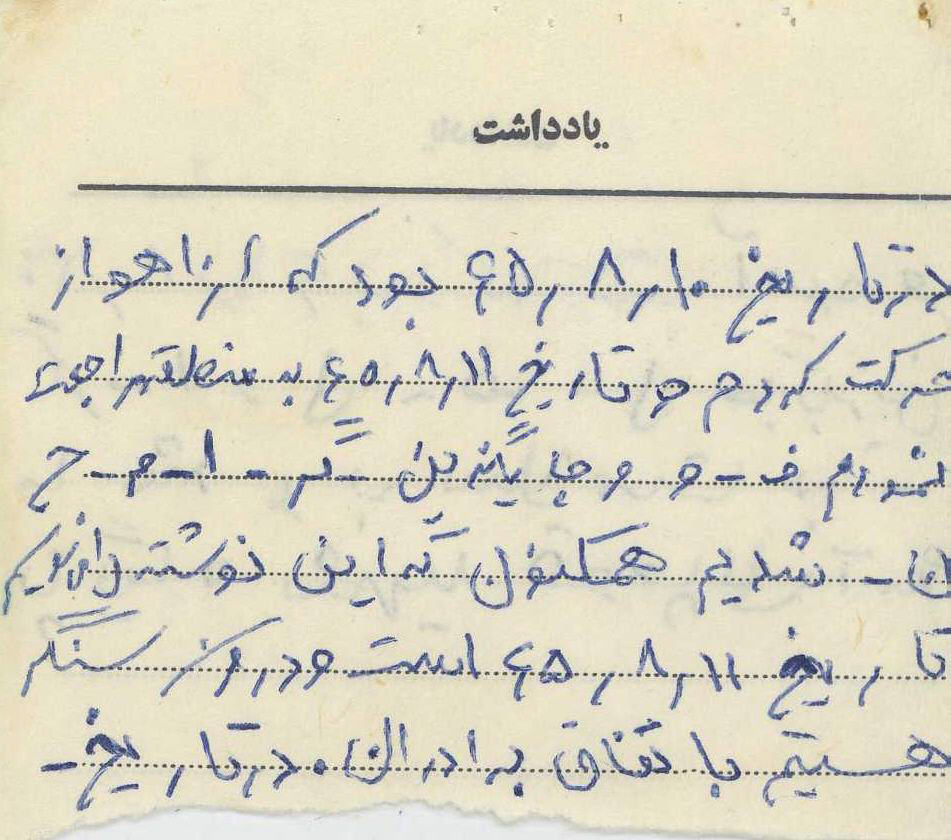 یادداشت
در تاریخ ۶۵٫۸٫۱۰ بود که از اهواز
حرکت کردم و تاریخ ۶۵٫۸٫۱۱ به منطقه مراجعت
نمودم ف - و و جایگزین گر - ا - م - ح
ن - شدیم همکنون که این نوشته را می‌نویسم
تاریخ ۶۵٫۸٫۱۱ است و در سنگر
هستیم با تفاق برادران. در تاریخ -